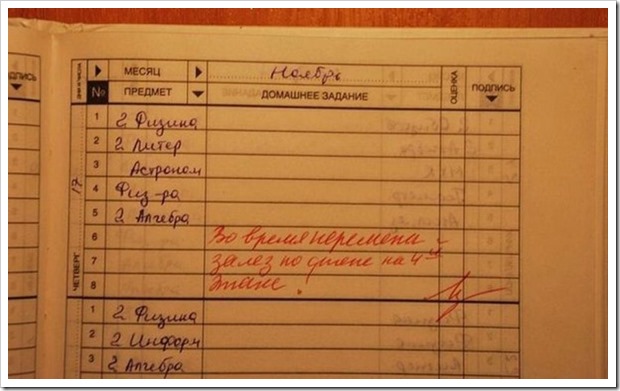 ПОДПИСЬ
МЕСЯЦ Ноябрь
№ ПРЕДМЕТ ДОМАШНЕЕ ЗАДАНИЕ ОЦЕНКА ПОДПИСЬ
17
ЧЕТВЕРГ
1 2 Физика
2 2 Литер
3 Астроном
4 Физ-ра
5 2 Алгебра
6 Во время перемены
7 залез по стене на 4ый
8 этаж!
1 2 Физика
2 2 Информ
3 2 Алгебра